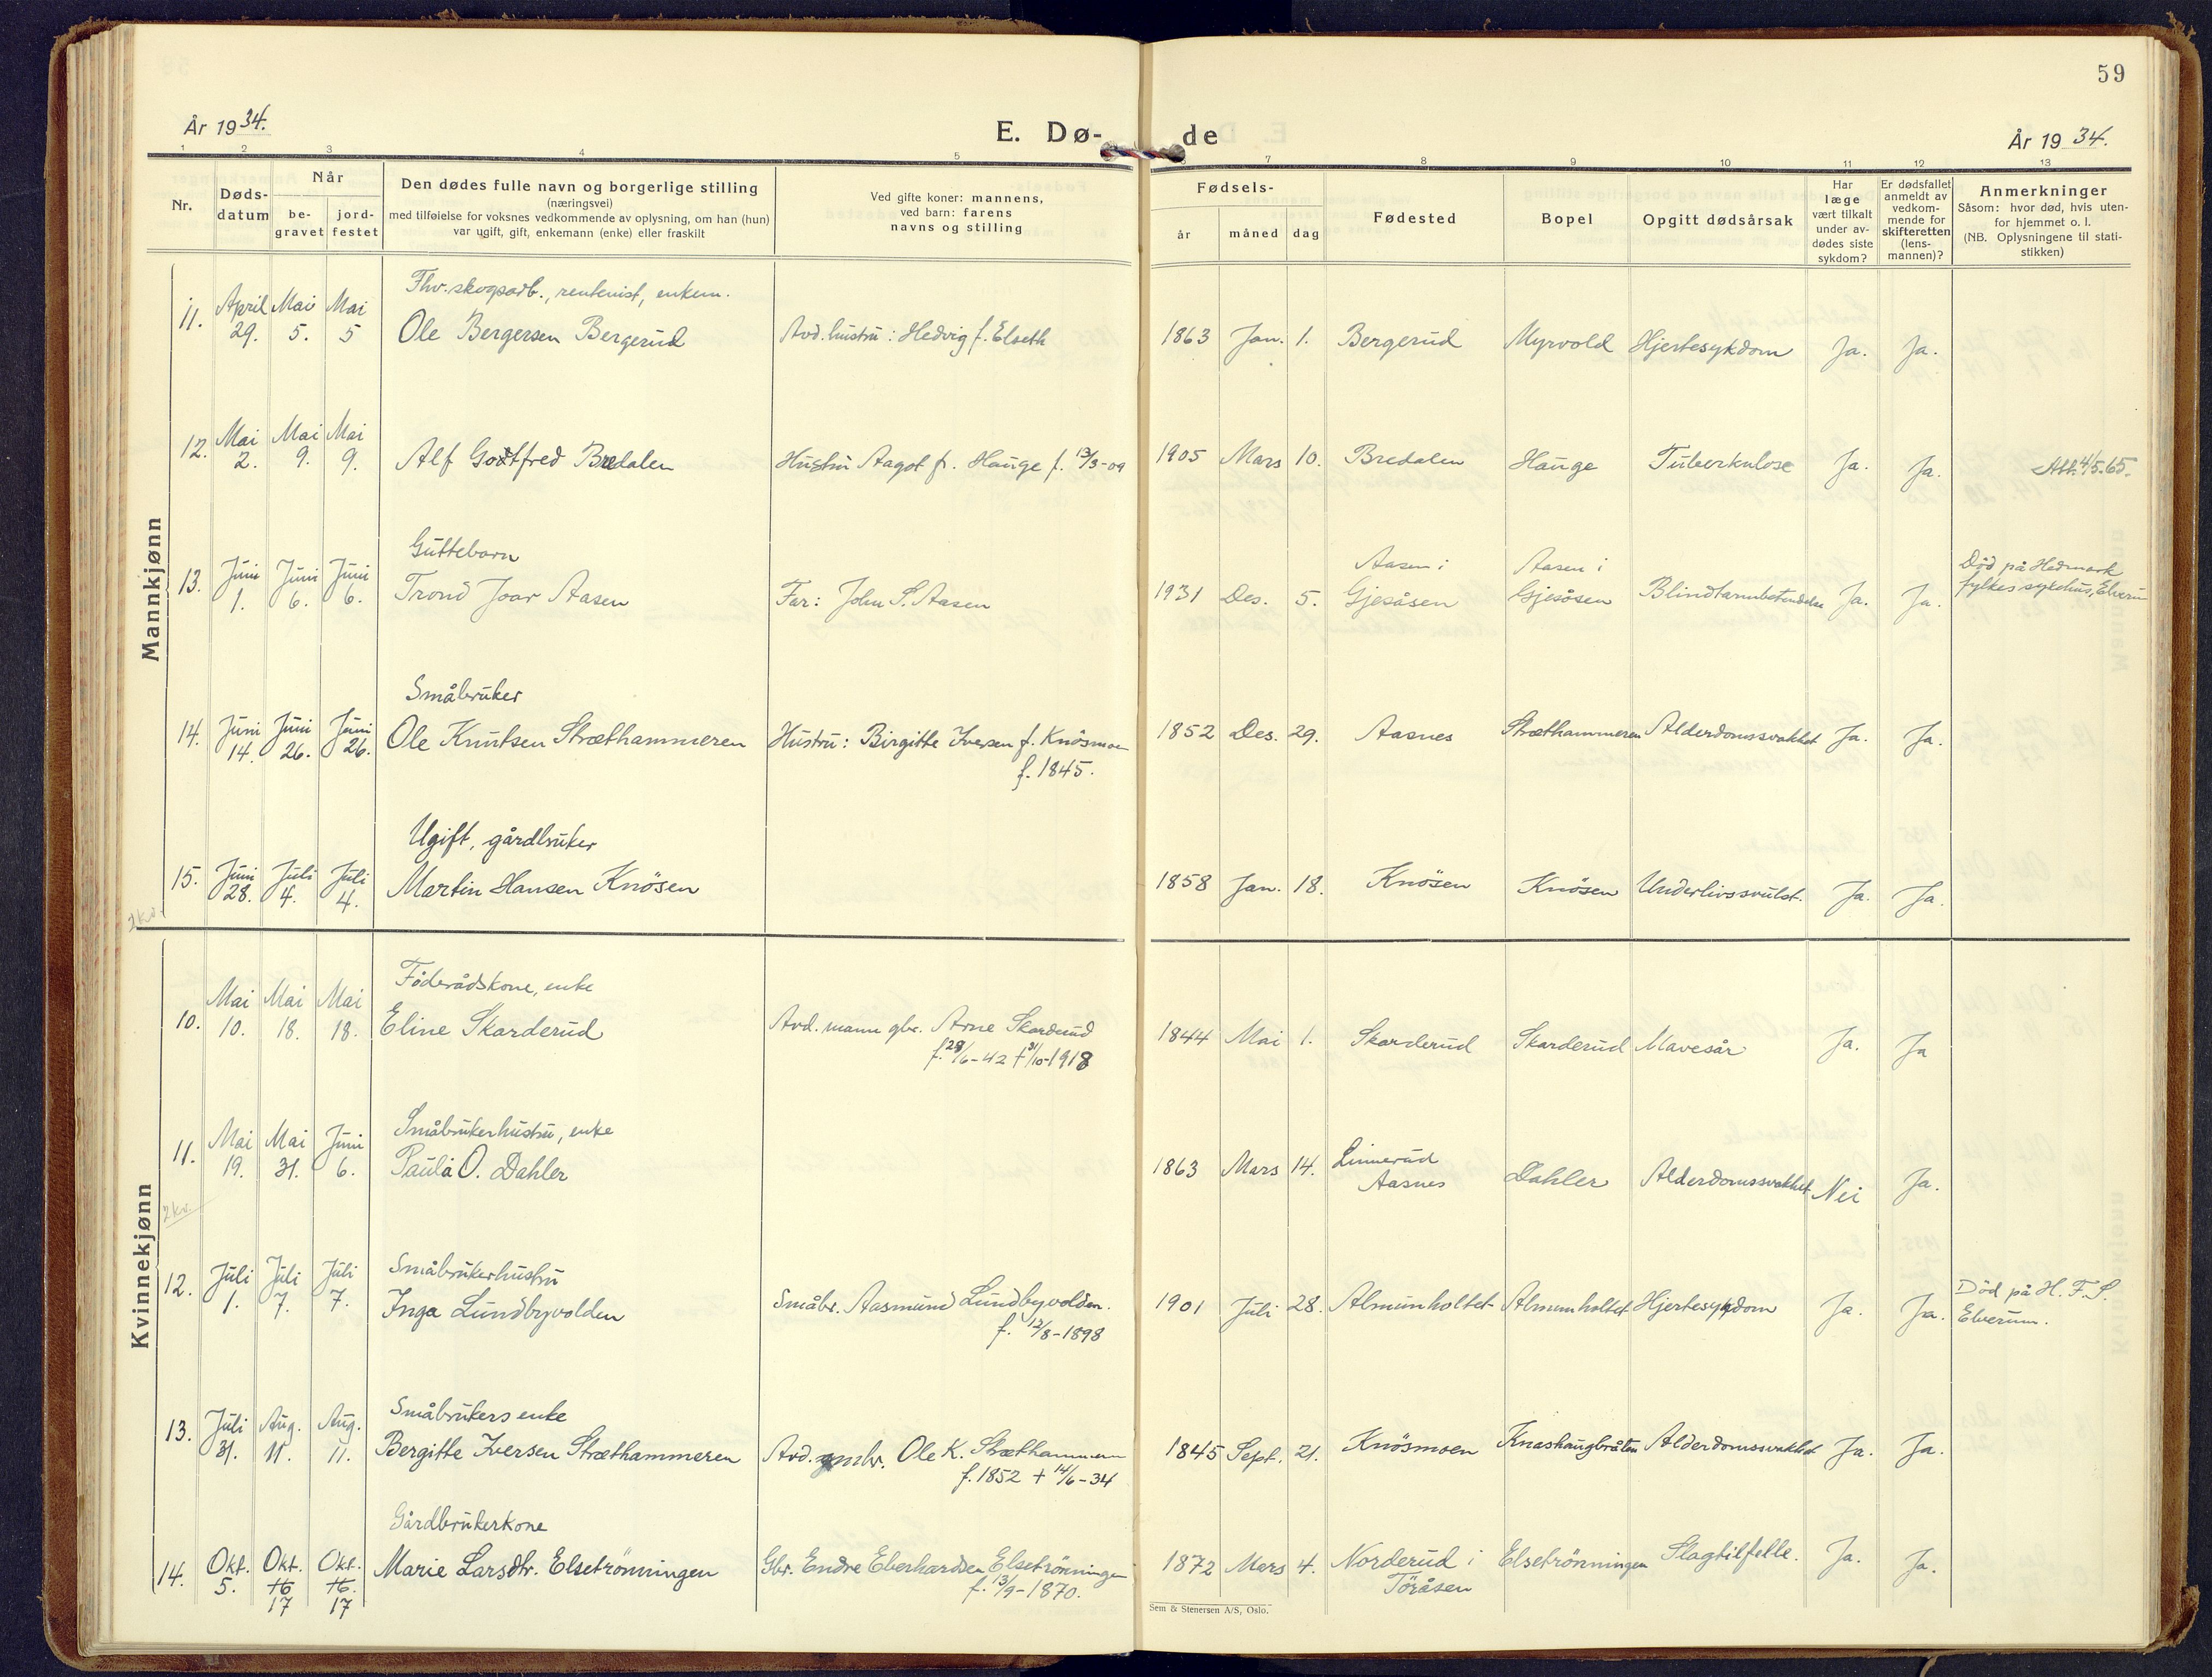 59
År 1934.
E. Dø- de
År 1934.
1 2 3 4 5 6 7 8 9 10 11 12 13
Nr.
Døds-
datum
Når
be-
gravet
jord-
festet
Den dødes fulle navn og borgerlige stilling
(næringsvei)
med tilføielse for voksnes vedkommende av oplysning, om han (hun)
var ugift, gift, enkemann (enke) eller fraskilt
Ved gifte koner: mannens,
ved barn: farens
navns og stilling
Fødsels-
år måned dag
Fødested
Bopel
Opgitt dødsårsak
Har
læge
vært tilkalt
under av-
dødes siste
sykdom?
Er dødsfallet
anmeldt av
vedkom-
mende for
skifteretten
(lens-
mannen)?
Anmerkninger
Såsom: hvor død, hvis uten-
for hjemmet o. l.
(NB. Oplysningene til stati-
stikken)
Mannkjønn
Thv. skogsarb., rentenist, enkem.
11. April 29. Mai 5. Mai 5 Ole Bergersen Bergerud Avd. hustru: Hedvig f. Elseth 1863 Jan. 1. Bergerud Myrvold Hjertesykdom Ja. Ja.
12. Mai 2. Mai 9. Mai 9. Alf Gottfred Bredalen Hustru Aagot f. Hauge f. 13/3-09 1905 Mars 10. Bredalen Hauge Tuberkulose Ja. Ja. 4/5.65.
Guttebarn
13. Juni 1. Juni 6. Juni 6. Trond Joar Aasen Far: John S. Aasen 1931 Des. 5. Aasen i Gjesåsen Aasen i Gjesåsen Blindtarmbetendelse Ja. Ja. Død på Hedmark
fylkes sykehus, Elverum
Småbruker
14. Juni 14. Juni 26. Juni 26. Ole Knutsen Stræthammeren Hustru: Birgitte Iversen f. Knösmoen
f. 1845.
1852 Des. 29. Aasnes Stræthammeren Alderdomssvakhet Ja. Ja.
Ugift, gårdbruker
15. Juni 28. Juli 4. Juli 4. Martin Hansen Knösen 1858 Jan. 18. Knösen Knösen Underlivssvulst. Ja. Ja.
2 kv.
Kvinnekjønn
Föderådskone, enke
10. Mai 10. Mai 18. Mai 18. Eline Skarderud Avd. mann gbr. Arne Skarderud
f. 28/6-42 † 31/10-1918
1844 Mai 1. Skarderud Skarderud Mavesår Ja. Ja
Småbrukerhustru, enke
11. Mai 19. Mai 31. Juni 6. Paula O. Dahler 1863 Mars 14. Linnerud
Aasnes Dahler Alderdomssvakhet Nei Ja.
2 kv.
Småbrukerhustru
12. Juli 1. Juli 7. Juli 7. Inga Lundbyvolden Småbr. Aasmund Lundbyvolden.
f. 12/8-1898
1901 Juli 28. Almunholtet Almunholtet Hjertesykdom Ja. Ja. Død på H. F. S.
Elverum.
Småbrukers enke
13. Juli 31. Aug. 11. Aug. 11. Bergitte Iversen Stræthammeren Avd. smbr. Ole K. Stræthammeren
f. 1852 + 14/6-34
1845 Sept. 21. Knösmoen Knashaugbråten Alderdomssvakhet Ja. Ja.
Gårdbrukerkone
14. Okt. 5. Okt. 16 17 Okt. 16. 17 Marie Larsdtr. Elsetrönningen Gbr. Endre Eberhardsen Elsetrönningen
f. 13/9-1870.
1872 Mars 4. Norderud i
Töråsen Elsetrönningen Slagtilfelle. Ja. Ja.
Sem & Stenersen A/S, Oslo.